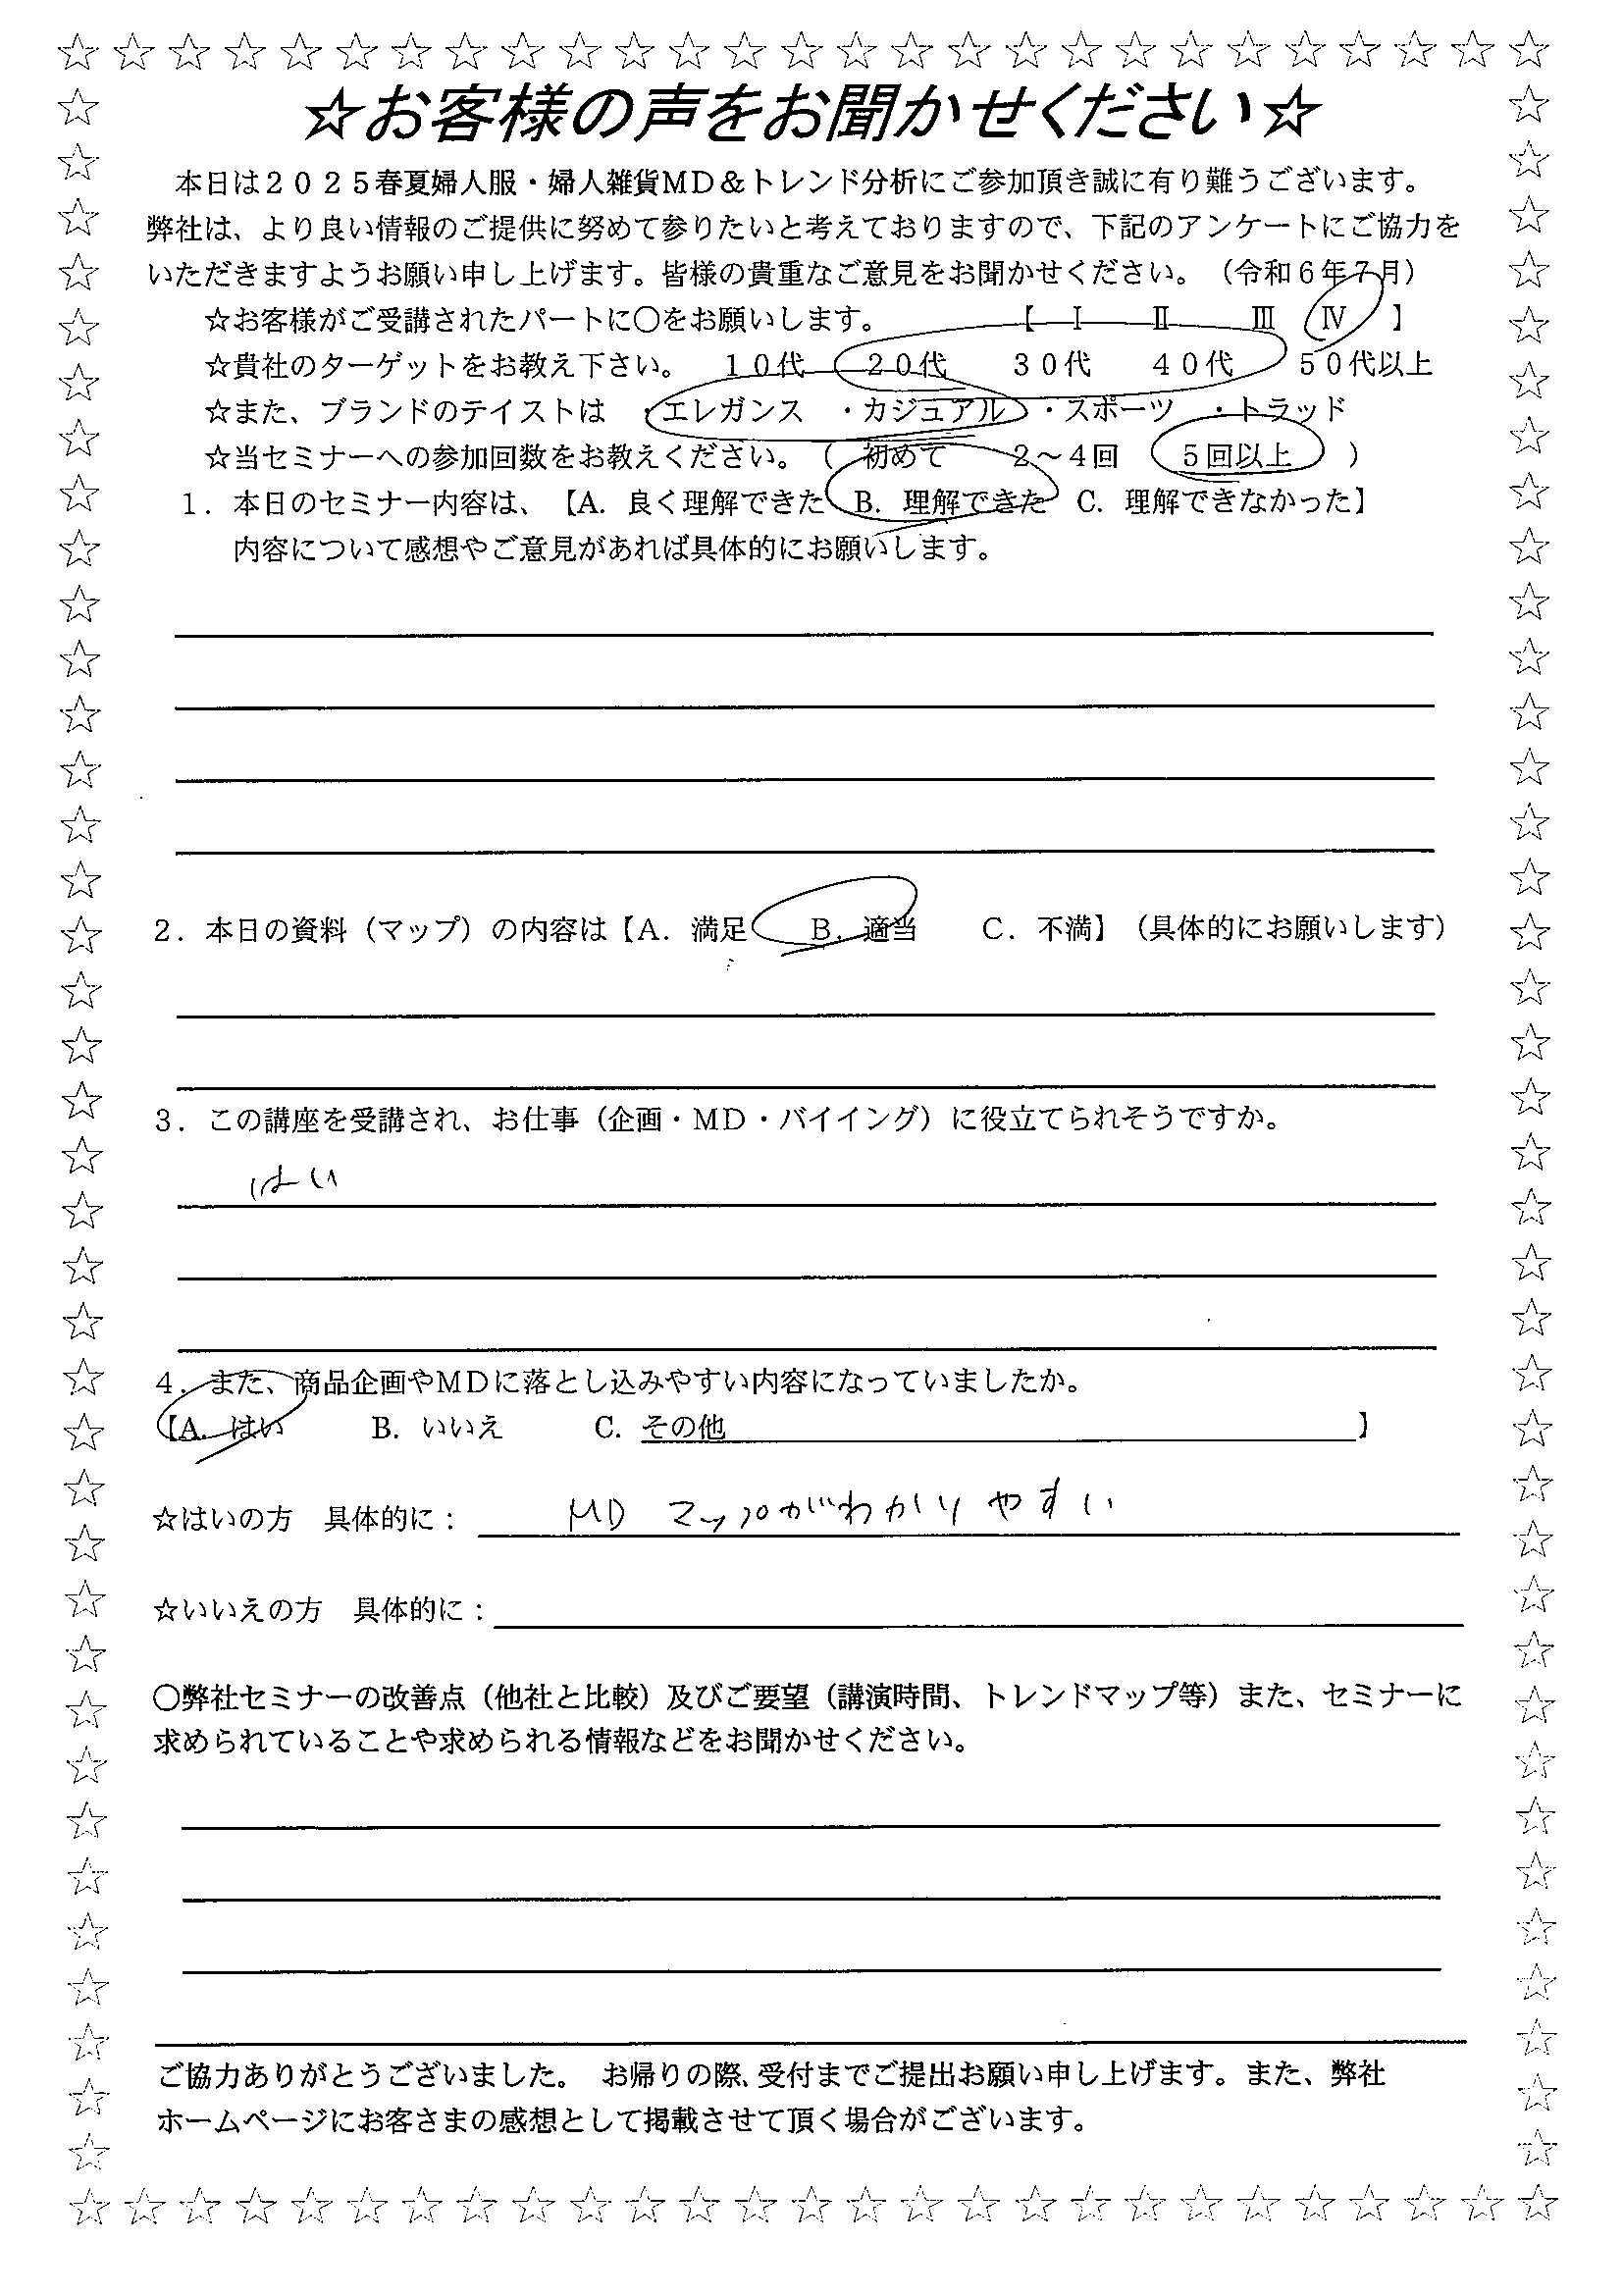 ☆お客様の声をお聞かせください☆
本日は２０２５春夏婦人服・婦人雑貨ＭＤ＆トレンド分析にご参加頂き誠に有り難うございます。
弊社は、より良い情報のご提供に努めて参りたいと考えておりますので、下記のアンケートにご協力を
いただきますようお願い申し上げます。皆様の貴重なご意見をお聞かせください。（令和６年７月）
☆お客様がご受講されたパートに〇をお願いします。【 Ⅰ Ⅱ Ⅲ Ⅳ 】
☆貴社のターゲットをお教え下さい。 １０代 ２０代 ３０代 ４０代 ５０代以上
☆また、ブランドのテイストは ・エレガンス ・カジュアル ・スポーツ ・トラッド
☆当セミナーへの参加回数をお教えください。（ 初めて ２～４回 ５回以上 ）
１．本日のセミナー内容は、【A. 良く理解できた B. 理解できた C. 理解できなかった】
内容について感想やご意見があれば具体的にお願いします。
２．本日の資料（マップ）の内容は【Ａ．満足 Ｂ．適当 Ｃ．不満】（具体的にお願いします）
３．この講座を受講され、お仕事（企画・ＭＤ・バイイング）に役立てられそうですか。
はい
４．また、商品企画やＭＤに落とし込みやすい内容になっていましたか。
【A. はい B. いいえ C. その他 】
☆はいの方 具体的に： MD マップがわかりやすい
☆いいえの方 具体的に：
〇弊社セミナーの改善点（他社と比較）及びご要望（講演時間、トレンドマップ等）また、セミナーに
求められていることや求められる情報などをお聞かせください。
ご協力ありがとうございました。 お帰りの際、受付までご提出お願い申し上げます。また、弊社
ホームページにお客さまの感想として掲載させて頂く場合がございます。